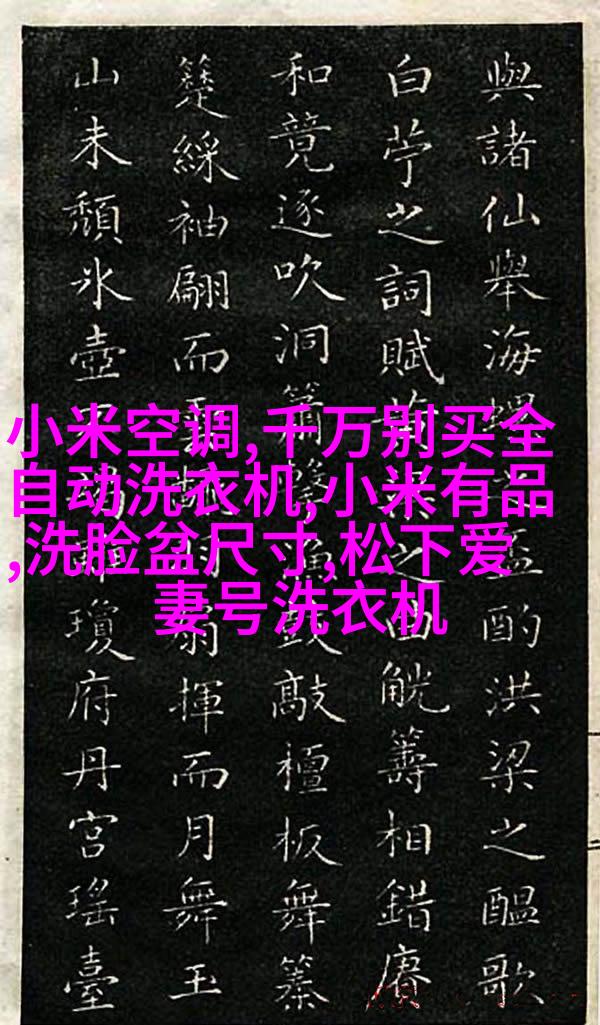 小米空调,千万别买全
自动洗衣机,小米有品
,洗脸盆尺寸,松下爱
妻号洗衣机
與諸仙舉海螺之盃酌洪梁之醖歌
白苧之詞賦之曲觥籌相錯賡
和竟逐吹洞簫漁鼓敲檀板舞纂
簇綵袖翩而羽扇揮而月舞玉
山未頹氷壺瓊府丹宮瑤臺